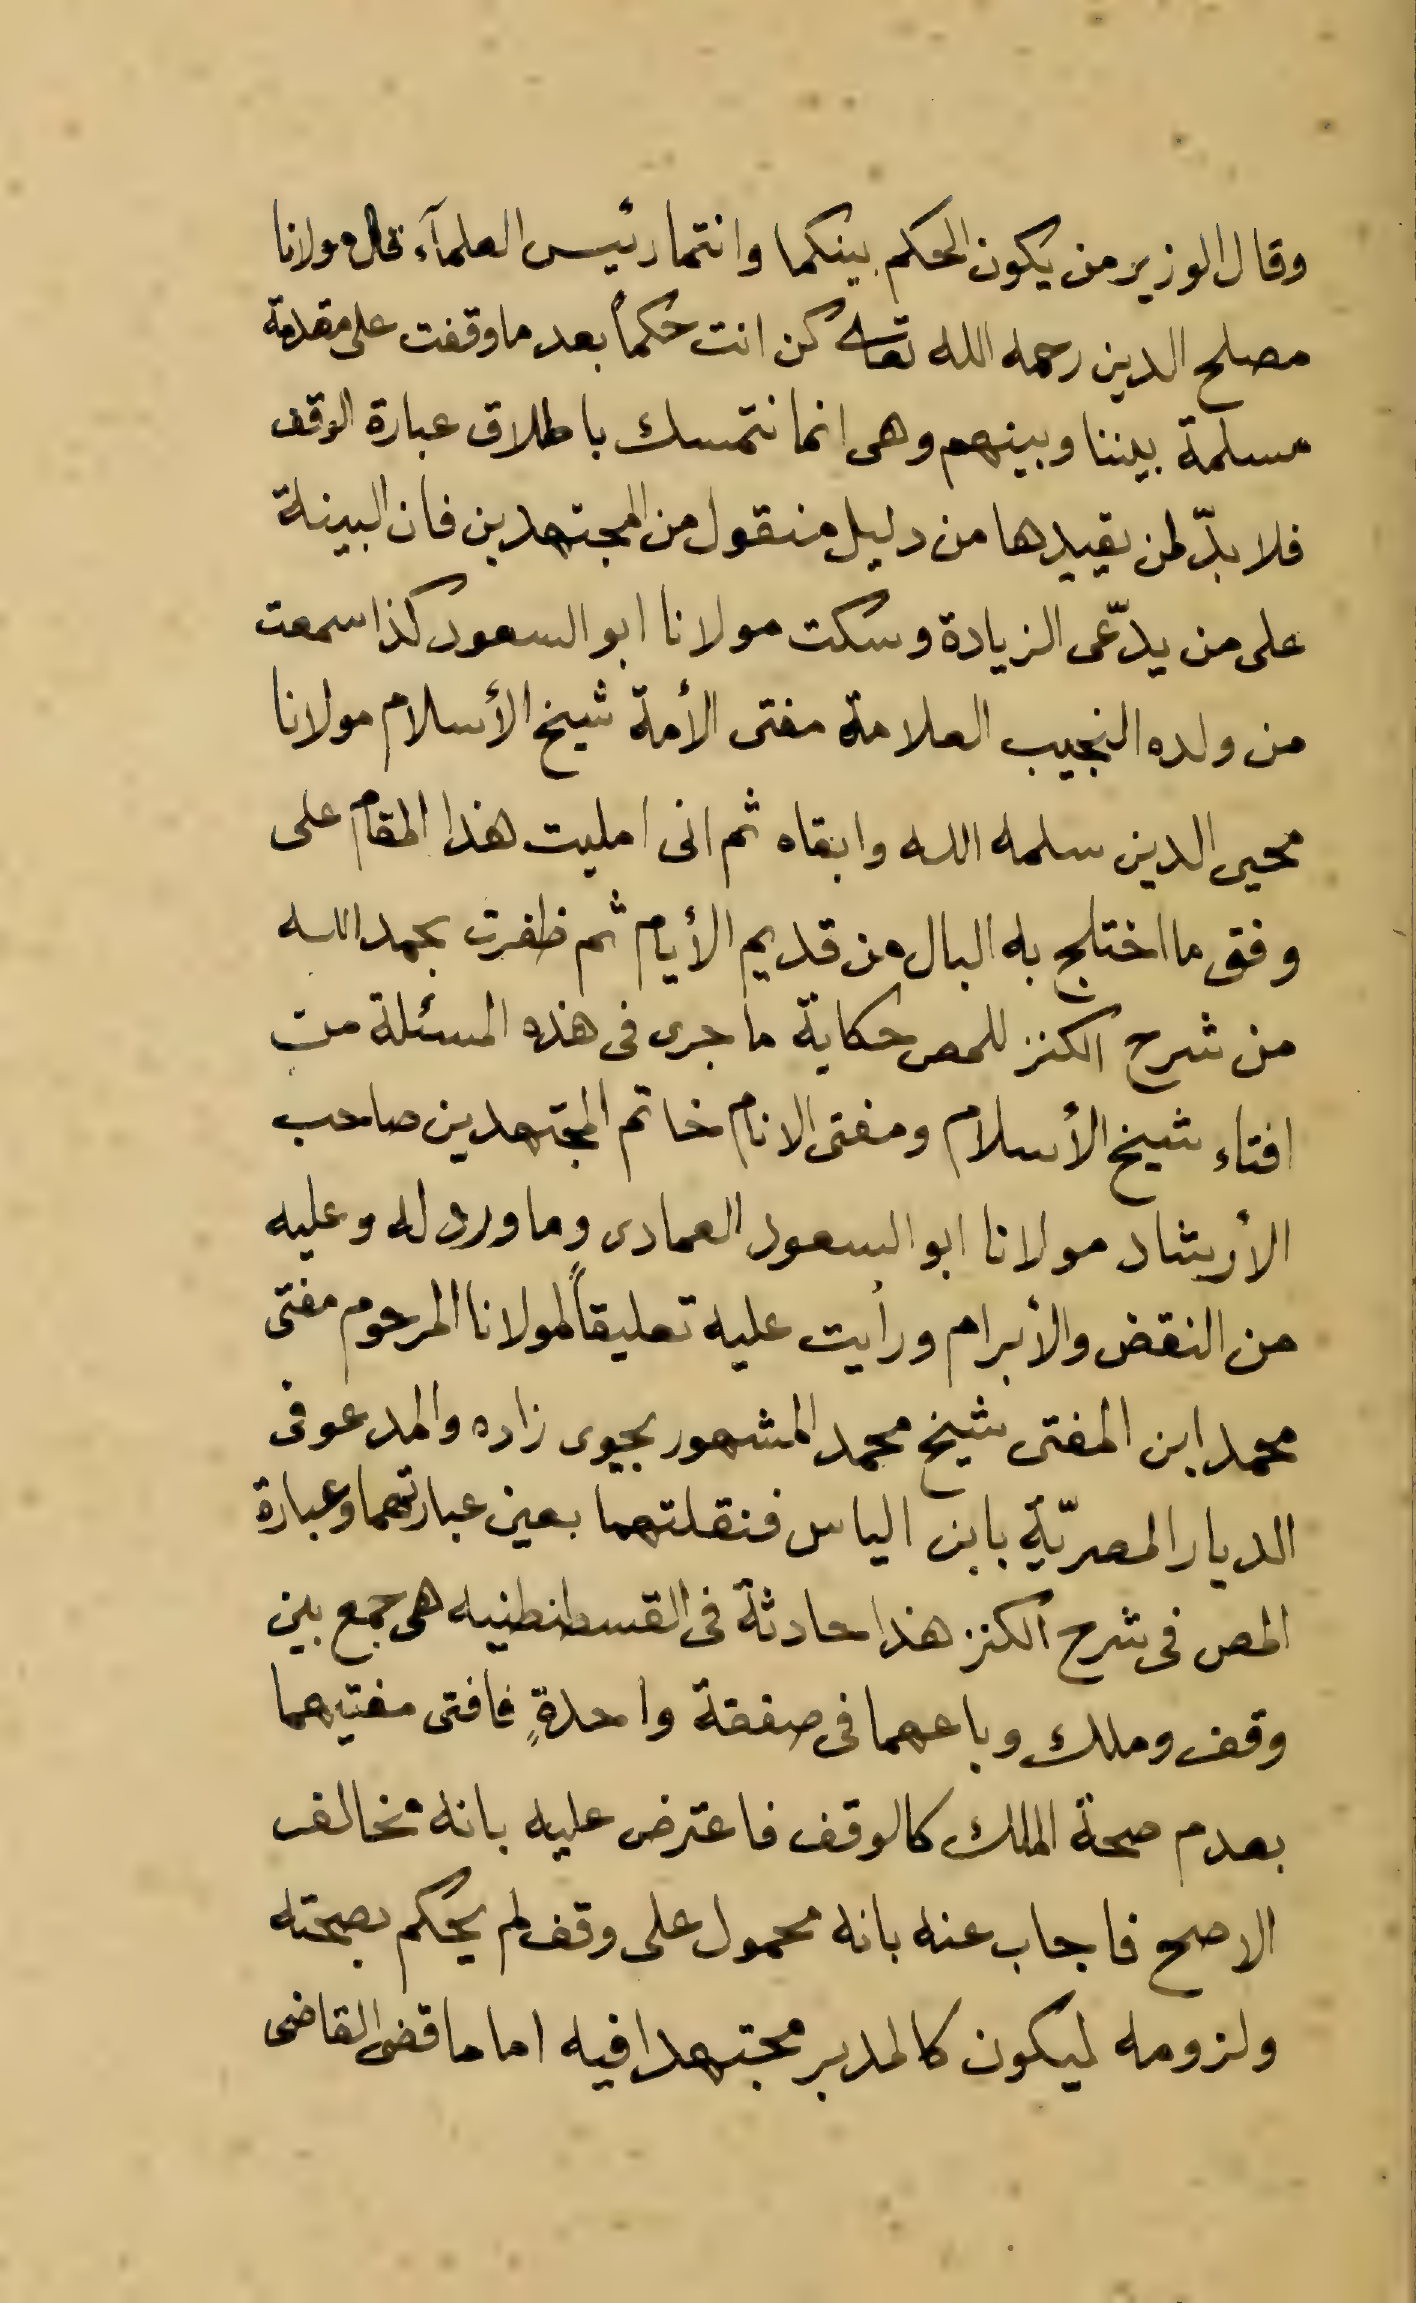 وقال الوزير من يكون الحكم بينكما وانتما رئيس العلمآء فقال مولانا
مصلح الدين رحمه الله تعالى كن انت حكماً بعد ما وقفت على مقدمة
مسلمة بيننا وبينهم وهى انما نتمسك باطلاق عبارة الوقف
فلا بدّ لمن يقيدها من دليل منقول من المجتهدين فان البينة
على من يدّعى الزيادة وسكت مولانا ابو السعود كذا سمعت
من ولده النجيب العلامة مفتى الأمة شيخ الأسلام مولانا
محيى الدين سلمه الله وابقاه ثم انى امليت هذا المقام على
وفق ما اختلج به البال من قديم الأيام ثم ظفرت بحمد الله
من شرح الكنز للمص حكاية ما جرى فى هذه المسئلة من
افتاء شيخ الأسلام ومفتى الانام خاتم المجتهدين صاحب
الأرشاد مولانا ابو السعود العمادى وما ورد له وعليه
من النقض والأبرام ورأيت عليه تعليقاً لمولانا المرحوم مفتى
محمد ابن المفتى شيخ محمد المشهور بجيوى زاده والمدعو فى
الديار المصريّة بابن الياس فنقلتهما بعين عبارتهما وعبارة
المص فى شرح الكنز هذا حادثة فى القسطنطنيه هى جمع بين
وقف وملك وباعهما فى صفقة واحدةٍ فافتى مفتيهما
بعدم صحة الملك كالوقف فاعترض عليه بانه مخالف
الاصح فاجاب عنه بانه محمول على وقف لم يحكم بصحته
ولزومه ليكون كالمدبر مجتهدا فيه اما ما قضى القاضى